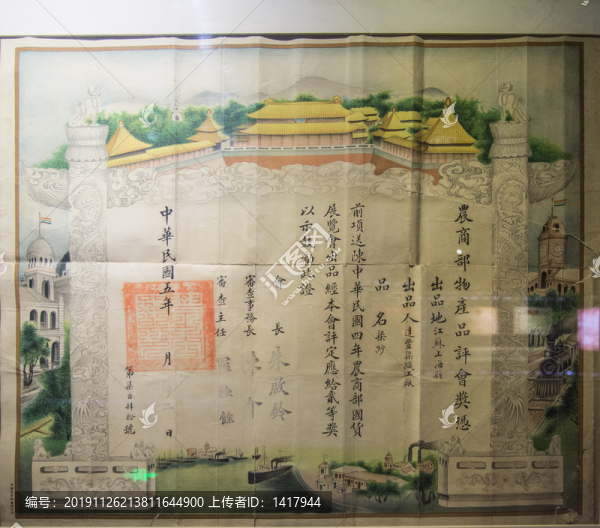 農商部物產品評會獎憑
出品地江蘇上海縣
出品人達豐染織工廠
品名染紗
前項送陳中華民國四年農商部國貨
展覽會出品經本會評定應給貳等獎
以示
證
長朱啟鈐
審查事務長
審查主任
中華民國五年 月 日
第柒百肆拾 號
编号：20191126213811644900 上传者ID：1417944